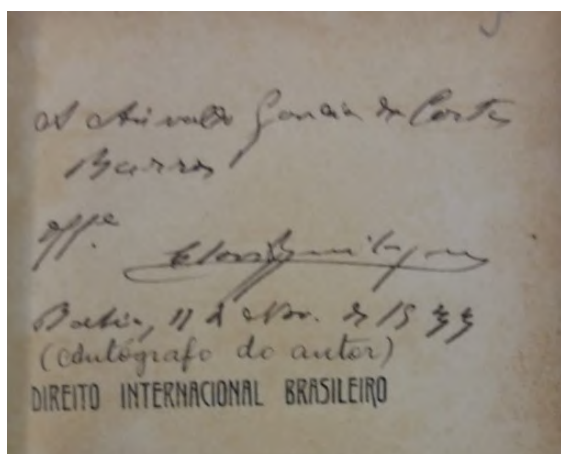 A Arivaldo Garcia da Costa
Barros
Off.e
Clovis Bevilaqua
Bahia, 11 de Nov. de 1933
(Autógrafo do autor)
DIREITO INTERNACIONAL BRASILEIRO